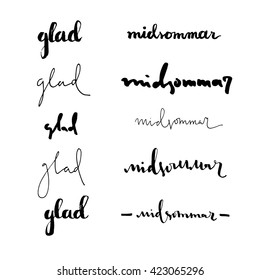 glad midsommar
glad midsommar
glad midsommar
glad midsommar
glad - midsommar -
shutterstock.com · 423065296